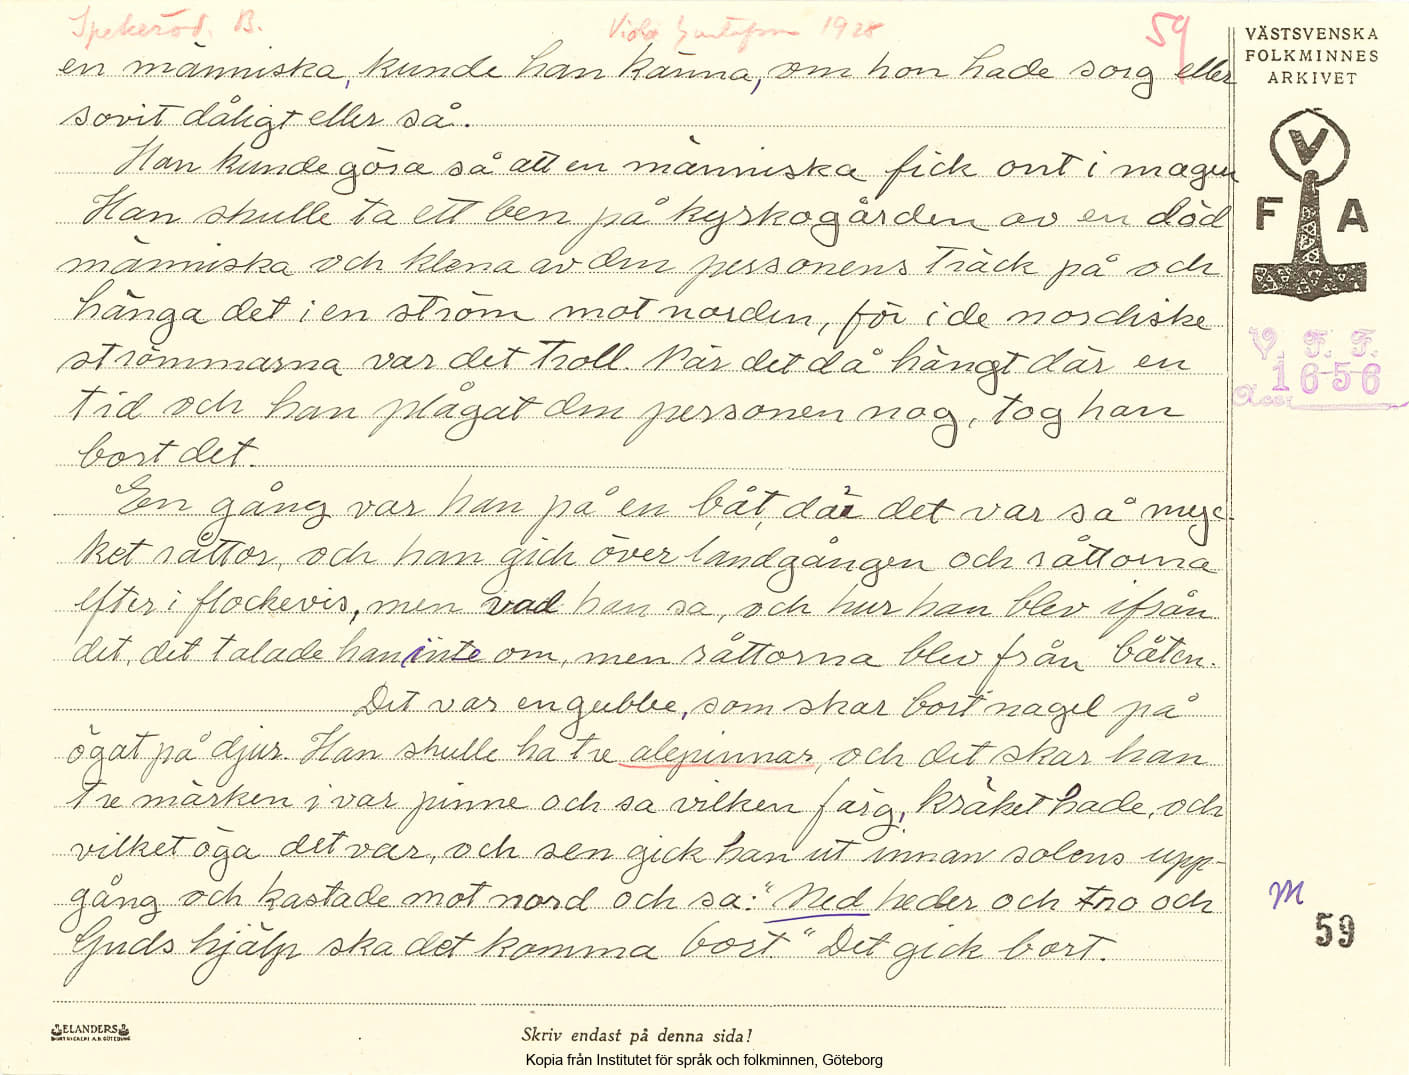 Spekeröd. B.
Viola Gustafson 1928
59
VÄSTSVENSKA
FOLKMINNES
ARKIVET
en människa, kunde han känna, om hon hade sorg eller
sovit dåligt eller så.
Han kunde göra så att en människa fick ont i magen
Han skulle ta ett ben på kyrkogården av en död
människa och klena av den personens träck på och
hänga det i en ström mot norden, för i de nordiske
strömmarna var det troll. När det då hängt där en
tid och han plågat den personen nog, tog han
bort det.
En gång var han på en båt, där det var så myc-
ket råttor, och han gick över landgången och råttorna
efter i flockevis, men vad han sa, och hur han blev ifrån
det, det talade han inte om, men råttorna blev från båten.
Det var en gubbe, som skar bort nagel på
ögat på djur. Han skulle ha tre alepinnar, och det skar han
tre märken i var pinne och sa vilken färg, kräket hade, och
vilket öga det var, och sen gick han ut innan solens upp-
gång och kastade mot nord och sa: "Med heder och tro och
Guds hjälp ska det komma bort." Det gick bort.
V
F A
V. F. F.
1656
Acc:
M
59
ELANDERS
BOKTRYCKERI A.B. GÖTEBORG
Skriv endast på denna sida!
Kopia från Institutet för språk och folkminnen, Göteborg